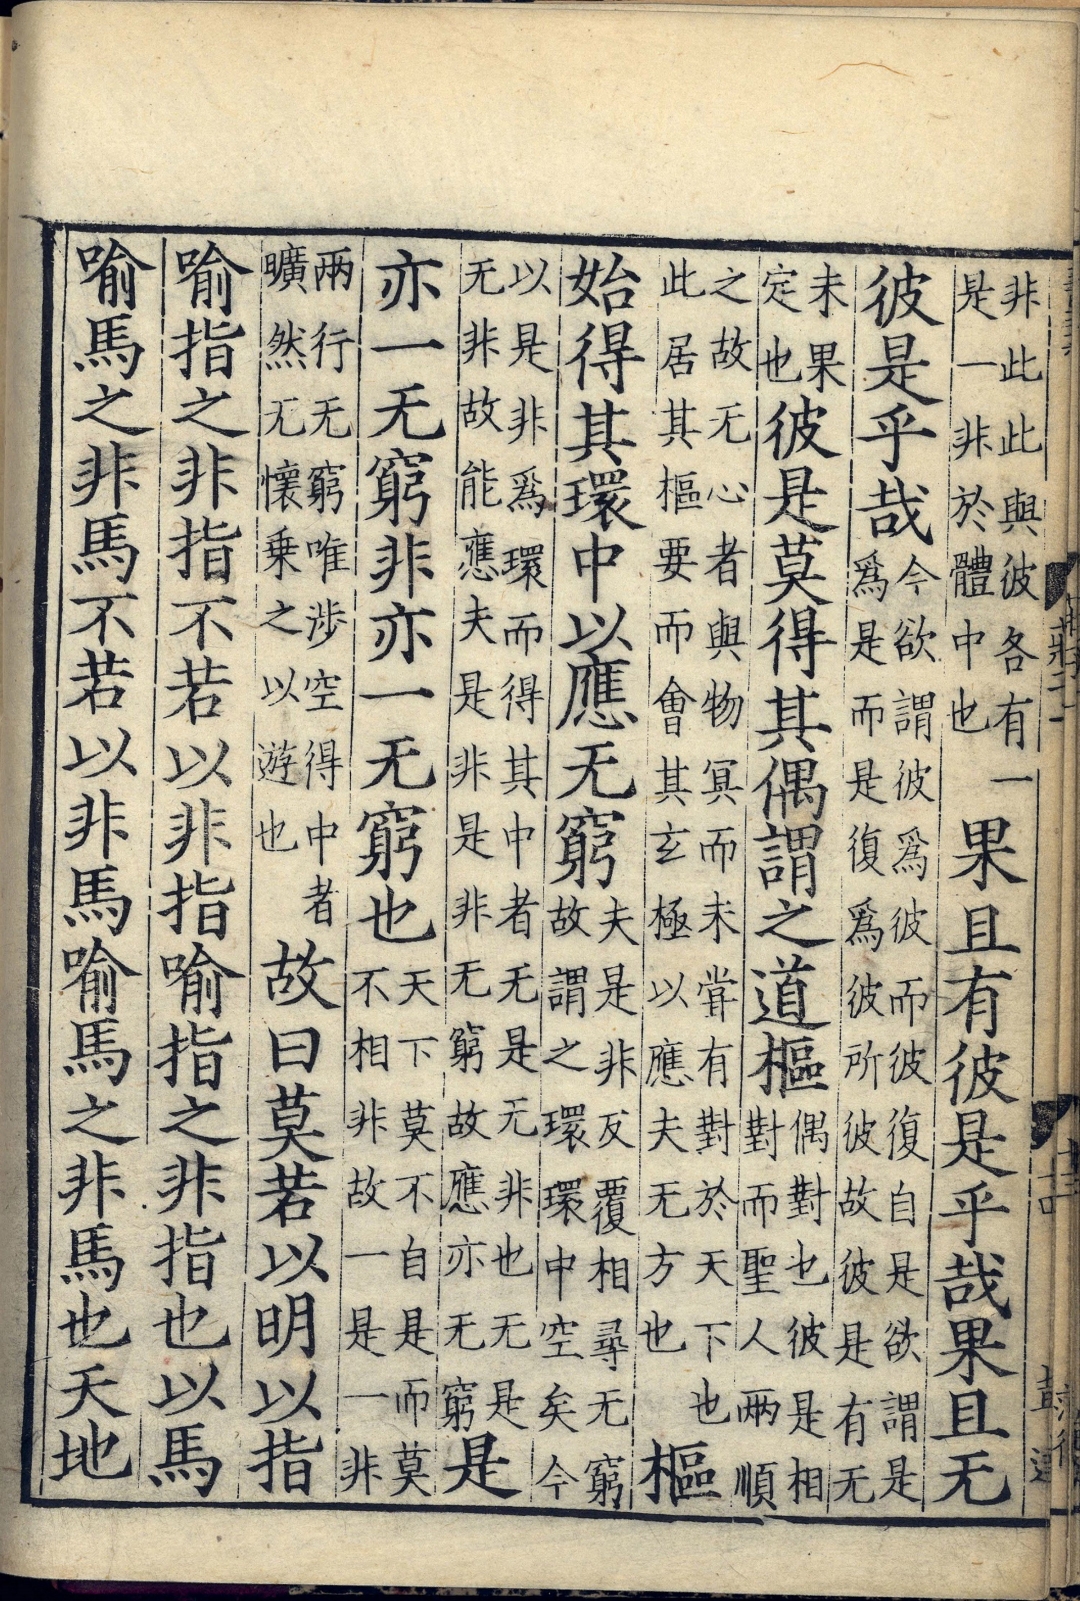 非此此與彼各有一是一非於體中也果且有彼是乎哉果且无
彼是乎哉今欲謂彼爲彼而彼復自是欲謂是爲是而是復爲彼所彼故彼是有无
未果定也彼是莫得其偶謂之道樞偶對也彼是相對而聖人兩順
之故无心者與物冥而未甞有對於天下也此居其樞要而會其玄極以應夫无方也樞
始得其環中以應无窮夫是非反覆相尋无窮故謂之環環中空矣今
以是非爲環而得其中者无是无非也无是无非故能應夫是非是非无窮故應亦无窮是
亦一无窮非亦一无窮也天下莫不自是而莫不相非故一是一非
兩行无窮唯涉空得中者曠然无懷乗之以遊也故曰莫若以明以指
喻指之非指不若以非指喻指之非指也以馬
喻馬之非馬不若以非馬喻馬之非馬也天地